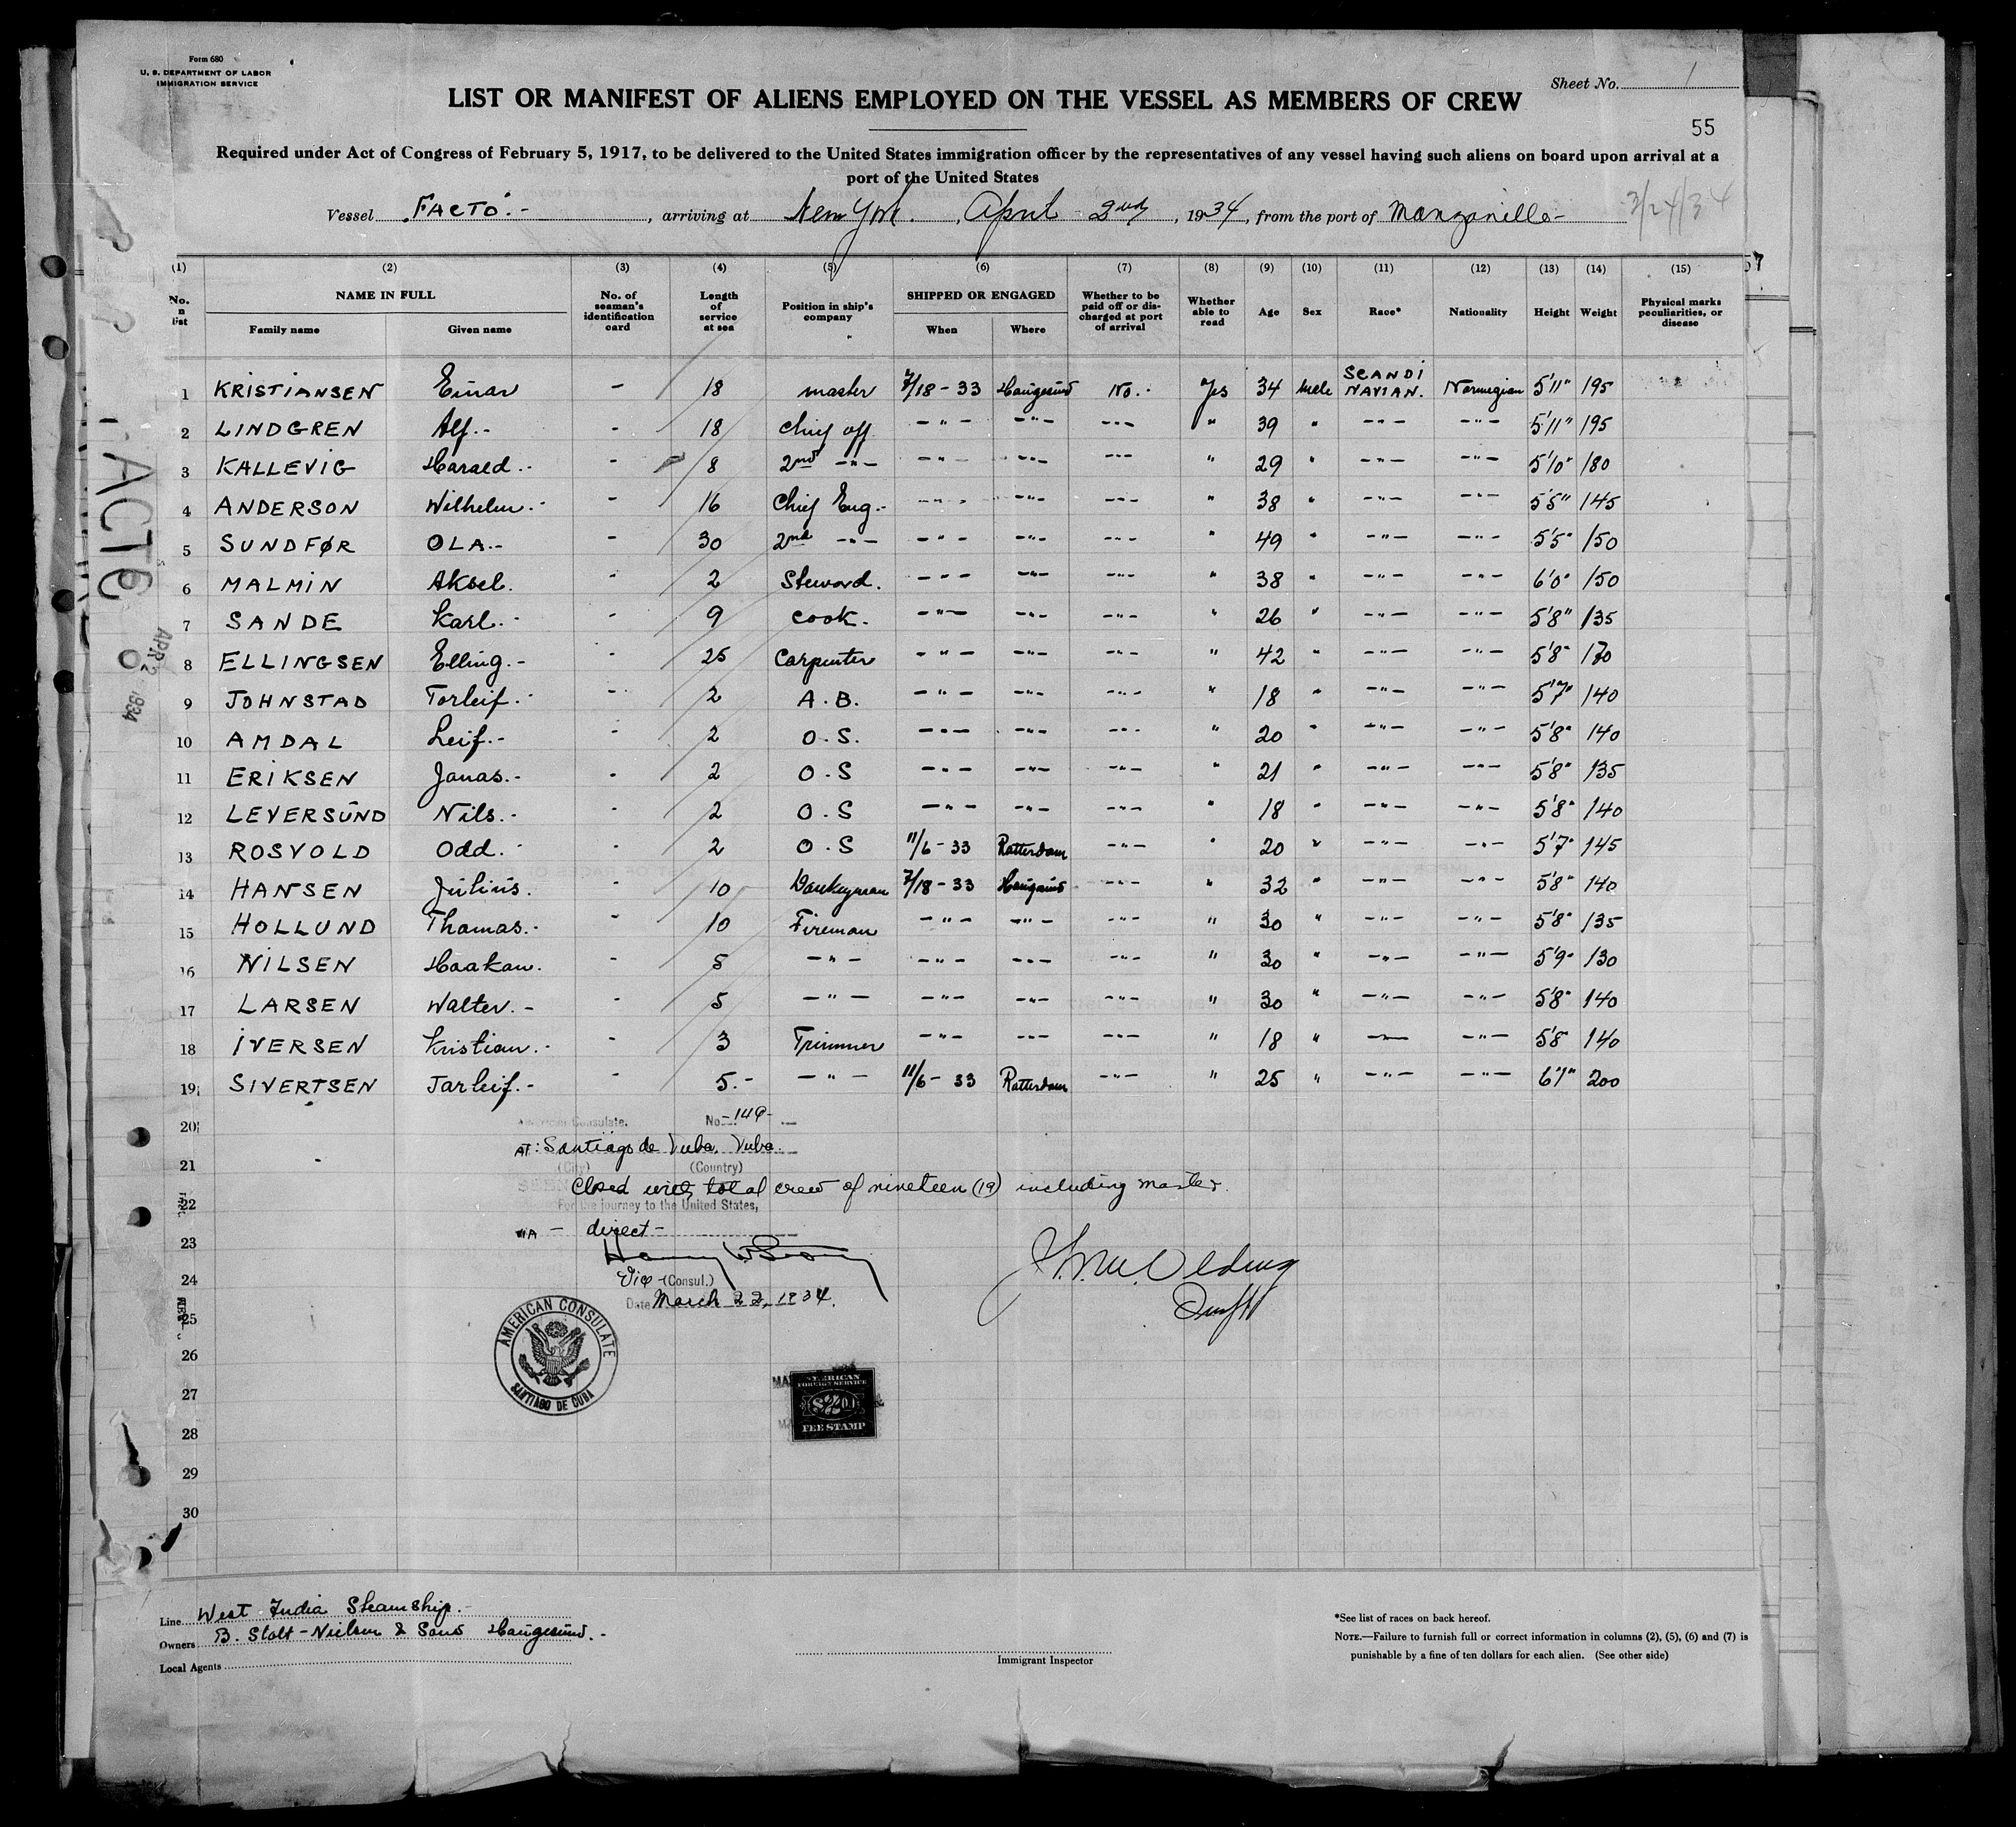 Form 680
U. S. DEPARTMENT OF LABOR
IMMIGRATION SERVICE
Sheet No. 1
LIST OR MANIFEST OF ALIENS EMPLOYED ON THE VESSEL AS MEMBERS OF CREW
55
Required under Act of Congress of February 5, 1917, to be delivered to the United States immigration officer by the representatives of any vessel having such aliens on board upon arrival at a
port of the United States
Vessel "FACTO".-, arriving at New York., April 2nd, 1934, from the port of Manzanillo- 3/24/34
(1) (2) (3) (4) (5) (6) (7) (8) (9) (10) (11) (12) (13) (14) (15) 57
No. n list NAME IN FULL Family name Given name No. of seaman's identification card Length of service at sea Position in ship's company SHIPPED OR ENGAGED When Where Whether to be paid off or discharged at port of arrival Whether able to read Age Sex Race* Nationality Height Weight Physical marks peculiarities, or disease
1 KRISTIANSEN Einar - 18 master 7/18-33 Haugesund No.- Yes 34 Male SCANDINAVIAN. Norwegian 5'11" 195
2 LINDGREN Alf.- - 18 Chief off -"- -"- -"- " 39 " -"- -"- 5'11" 195
3 KALLEVIG Harald.- - 8 2nd -"- -"- -"- -"- " 29 " -"- -"- 5'10" 180
4 ANDERSON Wilhelm.- - 16 Chief Eng.- -"- -"- -"- " 38 " -"- -"- 5'5" 145
5 SUNDFØR OLA.- - 30 2nd -"- -"- -"- -"- " 49 " -"- -"- 5'5" 150
6 MALMIN Aksel. - 2 Steward. -"- -"- -"- " 38 " -"- -"- 6'0" 150
7 SANDE Karl.- - 9 Cook. -"- -"- -"- " 26 " -"- -"- 5'8" 135
8 ELLINGSEN Elling.- - 25 Carpenter -"- -"- -"- " 42 " -"- -"- 5'8" 170
9 JOHNSTAD Torleif.- - 2 A.B. -"- -"- -"- " 18 " -"- -"- 5'7" 140
10 AMDAL Leif.- - 2 O.S. -"- -"- -"- " 20 " -"- -"- 5'8" 140
11 ERIKSEN Jonas.- - 2 O.S -"- -"- -"- " 21 " -"- -"- 5'8" 135
12 LEVERSUND Nils.- - 2 O.S -"- -"- -"- " 18 " -"- -"- 5'8" 140
13 ROSVOLD Odd.- - 2 O.S 11/6-33 Rotterdam -"- " 20 " -"- -"- 5'7" 145
14 HANSEN Julius. - 10 Donkeyman 7/18-33 Haugesund -"- " 32 " -"- -"- 5'8" 140
15 HOLLUND Thomas.- - 10 Fireman -"- -"- -"- " 30 " -"- -"- 5'8" 135
16 NILSEN Haakon. - 5 -"- -"- -"- -"- " 30 " -"- -"- 5'9" 130
17 LARSEN Walter.- - 5 -"- -"- -"- -"- " 30 " -"- -"- 5'8" 140
18 IVERSEN Kristian.- - 3 Trimmer -"- -"- -"- " 18 " -"- -"- 5'8 140
19 SIVERTSEN Torleif.- - 5.- -"- 11/6-33 Rotterdam -"- " 25 " -"- -"- 6'1" 200
American Consulate. No.-149-
20
AT: Santiago de Cuba, Cuba.
(City) (Country)
21
Closed with total crew of nineteen (19) including master.
22
For the journey to the United States,
VIA - direct-
23
24
Vice-(Consul.)
Date March 22, 1934.
25
AMERICAN CONSULATE
SANTIAGO DE CUBA
26
AMERICAN
FOREIGN SERVICE
FEE STAMP
27
28
29
30
APR 2 1934
Line West India Steamship.-
Owners B. Stolt-Nielsen & Sons Haugesund.-
Local Agents
Immigrant Inspector
*See list of races on back hereof.
NOTE.—Failure to furnish full or correct information in columns (2), (5), (6) and (7) is
punishable by a fine of ten dollars for each alien. (See other side)